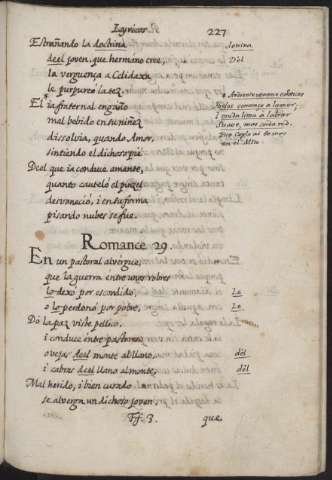 Lyricos 227
Estrañando la doctina
deel joven, que hermano cree,
la verguença a Celidaxa
le purpureò la tez.
El ia fraternal engaño
mal bebido en su niñez
dissolvia, quando Amor,
sintiendo el dichoso pie
Deel que ia conduce amante,
quanto cautelò el pincel
desvaneciò, i en su forma
pisando nubes se fue.
Romance 29
En un pastoral alvergue,
que la guerra entre unos robres
lo dexò por escondido
o lo perdonò por pobre,
Dò la paz viste pellico
i conduce entre pastores
ovejas deel monte al llano,
i cabras deel llano al monte,
Mal herido, i bien curado
se alverga un dichoso joven,
Ff. 3. que
Dèl
a labrar
suave, mas
en el
Le
Le
dèl
dèl